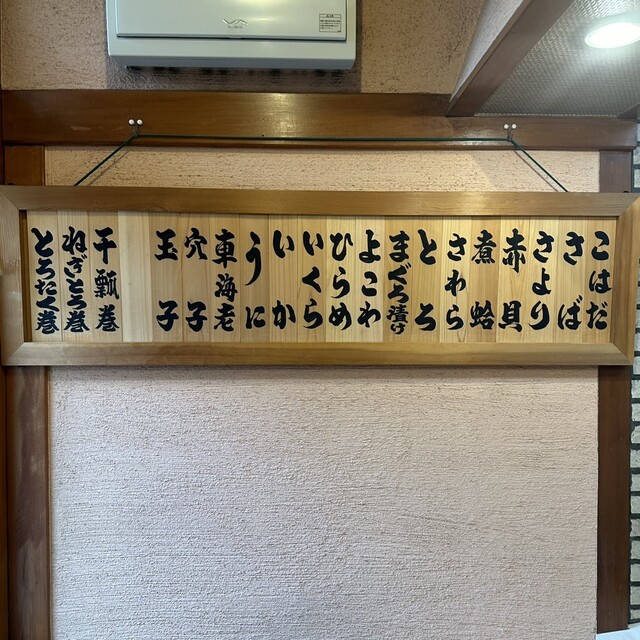 こはだ
さば
さより
赤貝
煮蛤
さわら
とろ
まぐろ漬け
よこわ
ひらめ
いくら
いか
うに
車海老
穴子
玉子
干瓢巻
ねぎとろ巻
とろたく巻